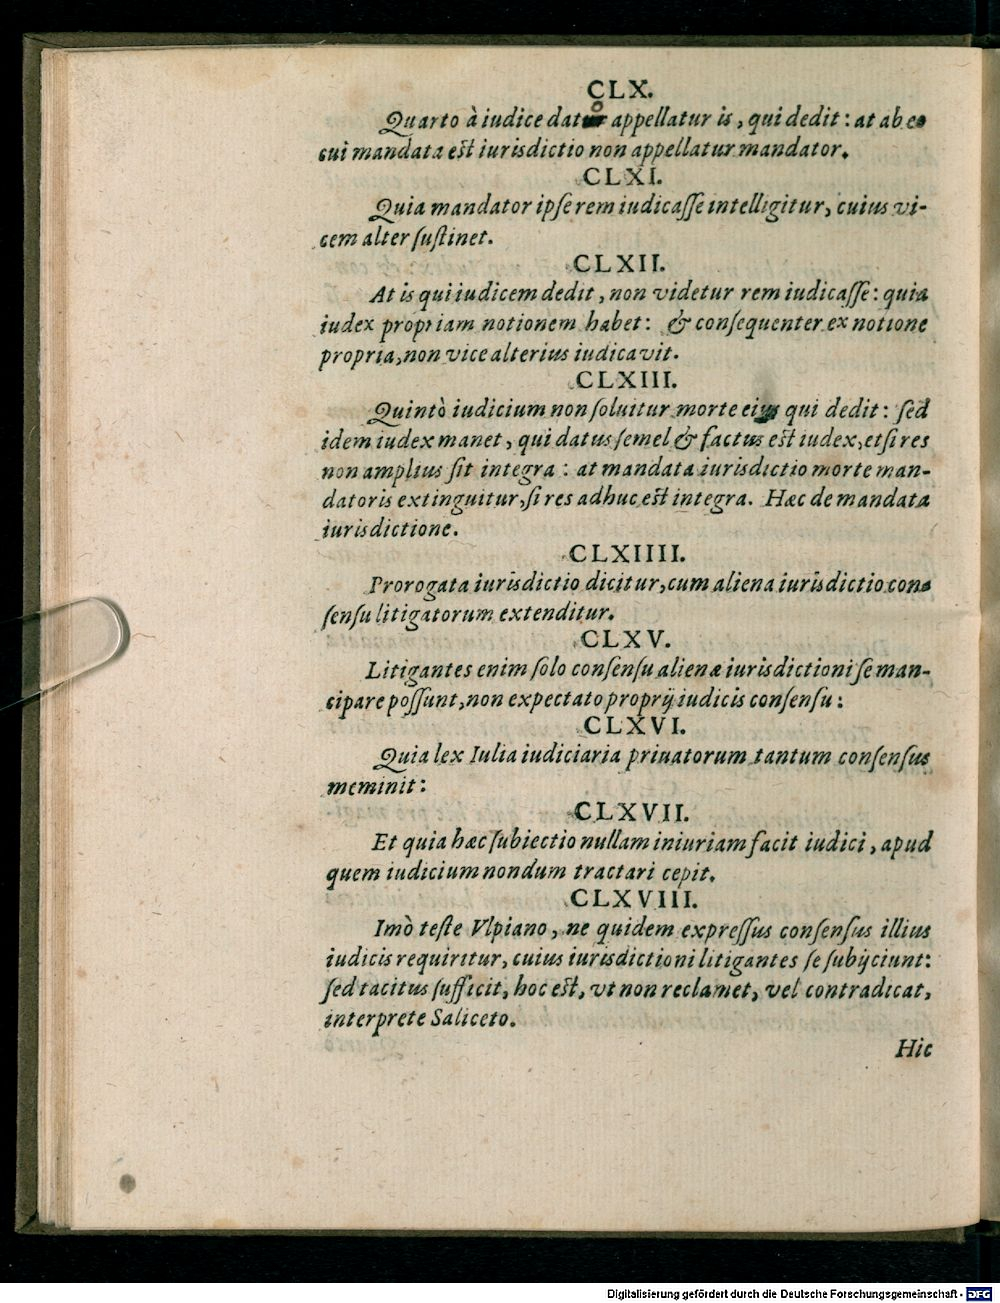 CLX.
Quarto à iudice dato appellatur is, qui dedit: at ab eo
cui mandata est iurisdictio non appellatur mandator.
CLXI.
Quia mandator ipse rem iudicasse intelligitur, cuius vi-
cem alter sustinet.
CLXII.
At is qui iudicem dedit, non videtur rem iudicasse: quia
iudex propriam notionem habet: & consequenter ex notione
propria, non vice alterius iudicavit.
CLXIII.
Quintò iudicium non soluitur morte eius qui dedit: sed
idem iudex manet, qui datus semel & factus est iudex, etsi res
non amplius sit integra: at mandata iurisdictio morte man-
datoris extinguitur, si res adhuc est integra. Hæc de mandata
iurisdictione.
CLXIIII.
Prorogata iurisdictio dicitur, cum aliena iurisdictio con-
sensu litigatorum extenditur.
CLXV.
Litigantes enim solo consensu alienæ iurisdictioni se man-
cipare possunt, non expectato proprij iudicis consensu:
CLXVI.
Quia lex Iulia iudiciaria priuatorum tantum consensus
meminit:
CLXVII.
Et quia hæc subiectio nullam iniuriam facit iudici, apud
quem iudicium nondum tractari cepit.
CLXVIII.
Imò teste Vlpiano, ne quidem expressus consensus illius
iudicis requiritur, cuius iurisdictioni litigantes se subijciunt:
sed tacitus sufficit, hoc est, vt non reclamet, vel contradicat,
interprete Saliceto.
Hic
Digitalisierung gefördert durch die Deutsche Forschungsgemeinschaft - DFG